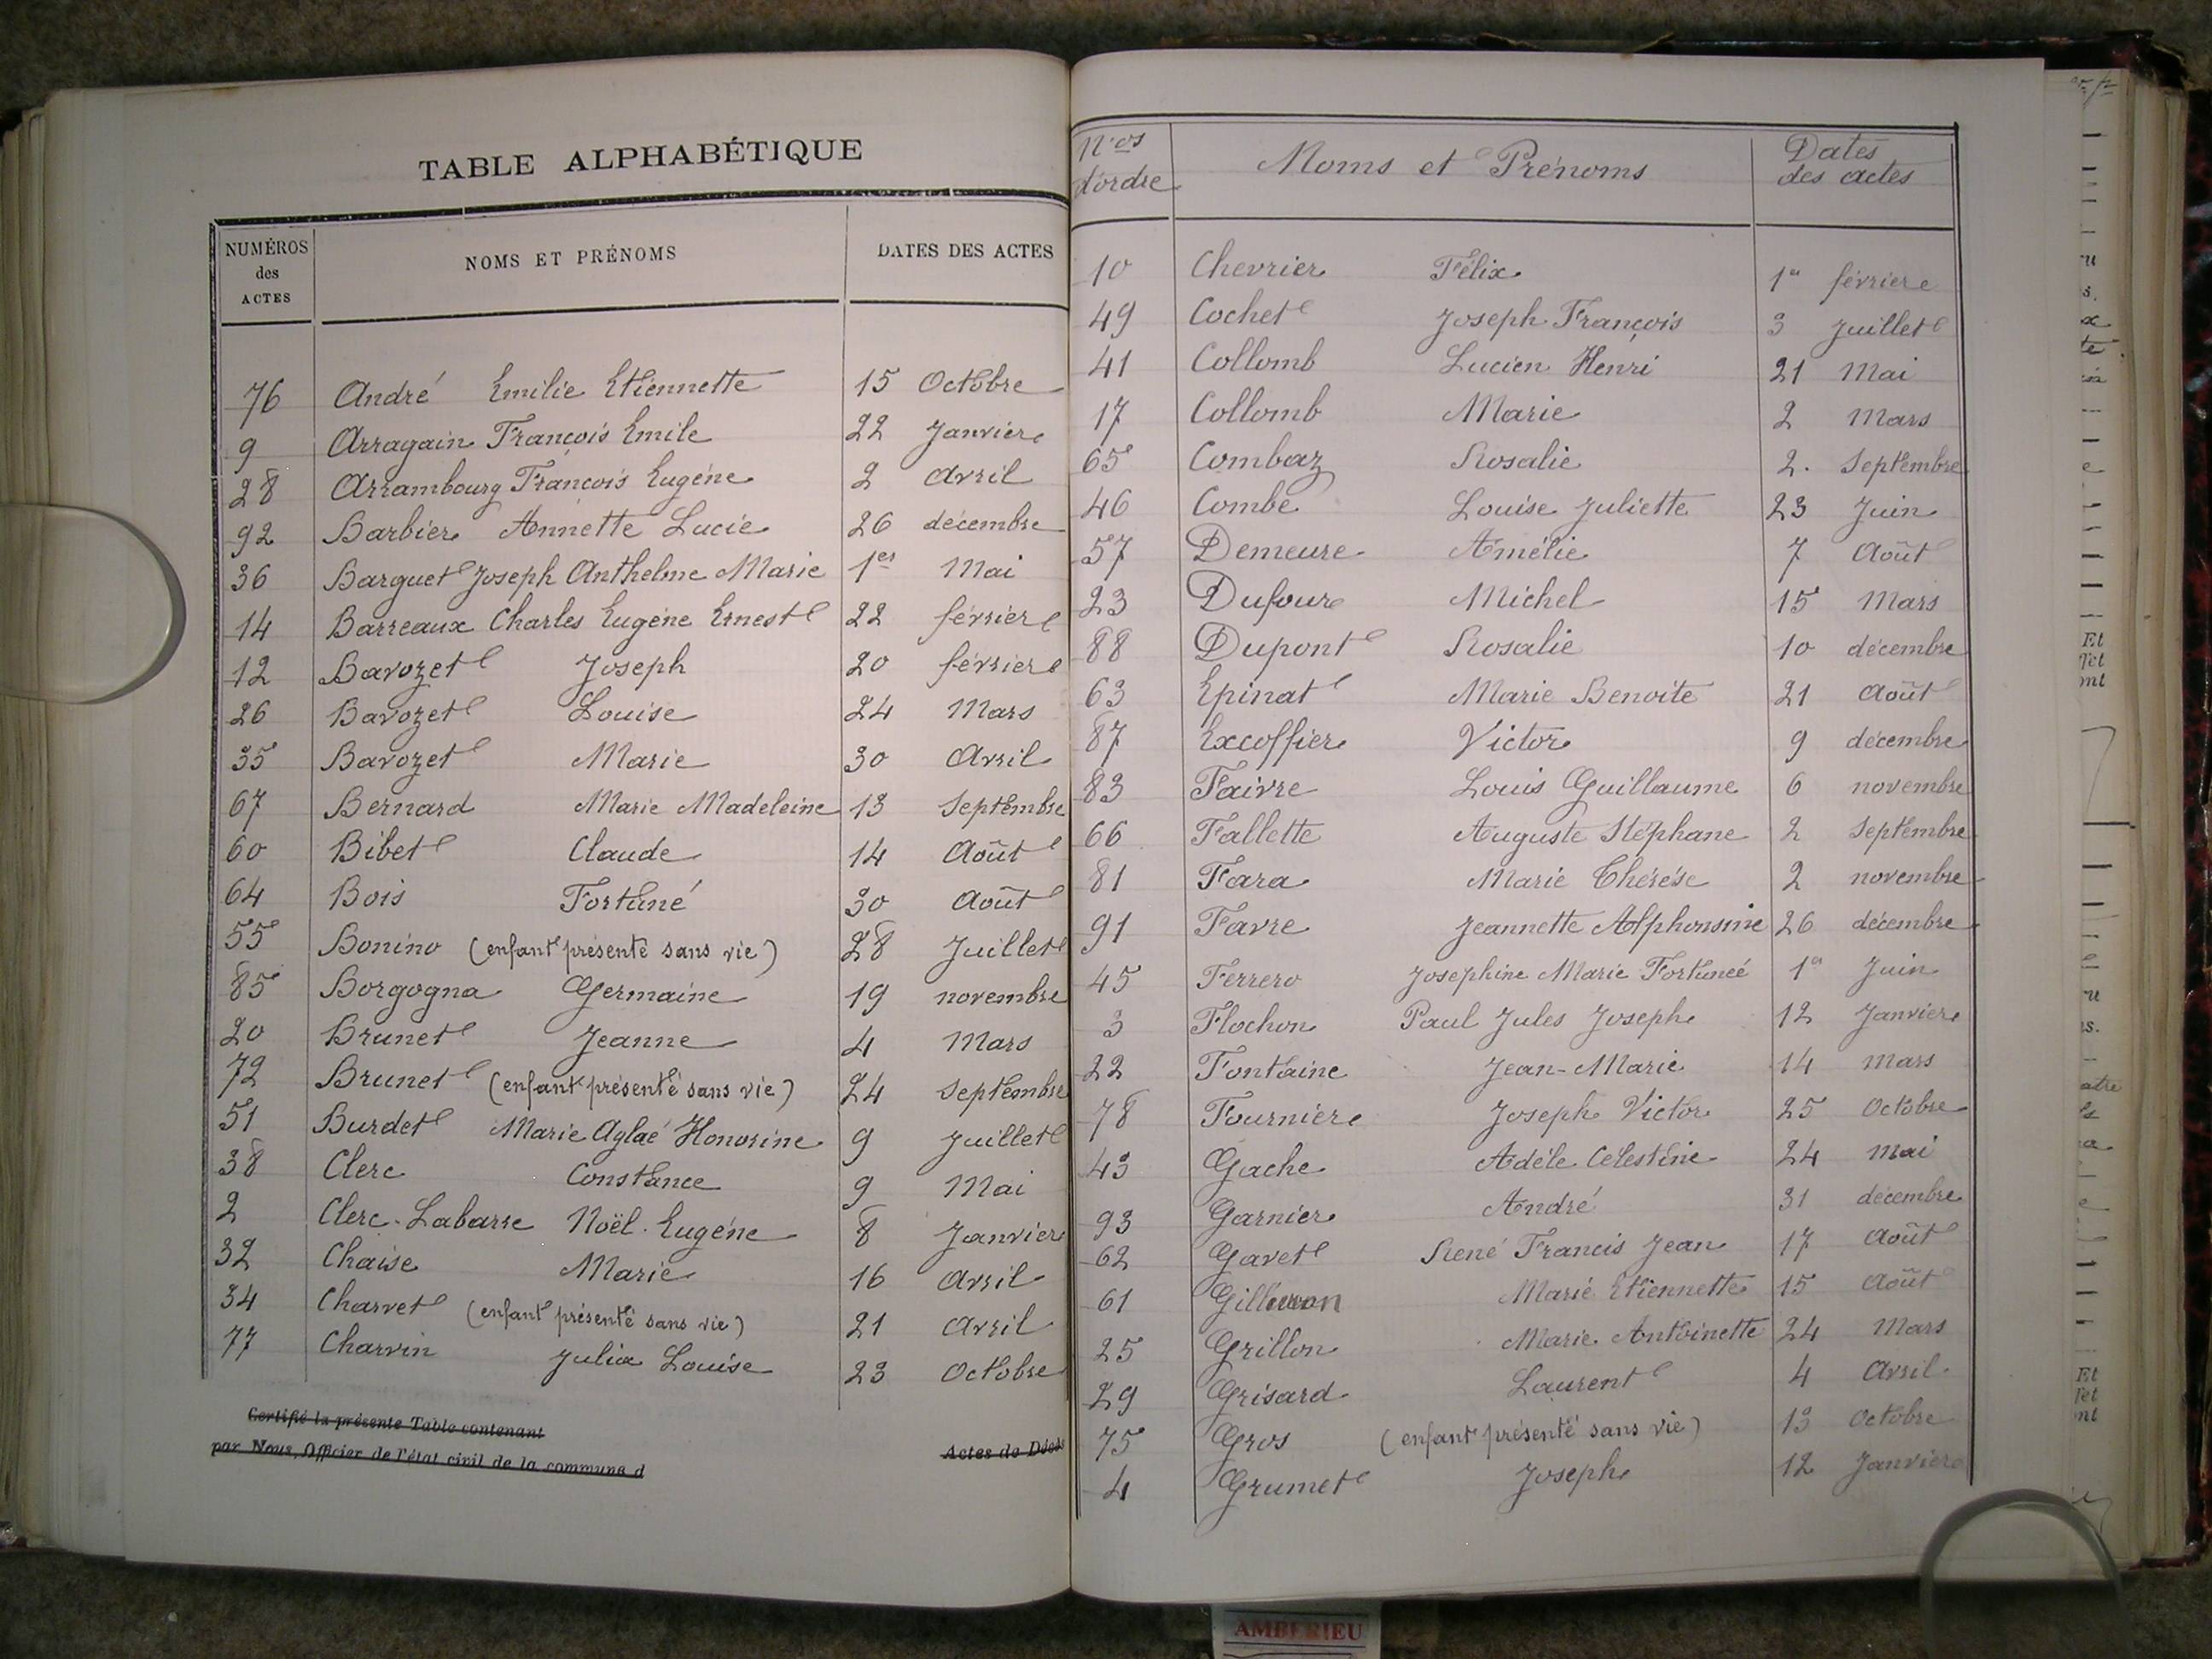 TABLE ALPHABÉTIQUE
NUMÉROS des ACTES NOMS ET PRÉNOMS DATES DES ACTES
76 André Emilie Etiennette 15 Octobre
9 Arragain François Emile 22 Janvier
28 Arrambourg François Eugène 2 Avril
92 Barbier Annette Lucie 26 décembre
36 Barquet Joseph Anthelme Marie 1er Mai
14 Barreaux Charles Eugène Ernest 22 février
12 Bavozet Joseph 20 février
26 Bavozet Louise 24 Mars
35 Bavozet Marie 30 Avril
67 Bernard Marie Madeleine 13 Septembre
60 Bibet Claude 14 Août
64 Bois Fortuné 30 Août
55 Bonino (enfant présenté sans vie) 28 Juillet
85 Borgogna Germaine 19 novembre
20 Brunet Jeanne 4 Mars
72 Brunet (enfant présenté sans vie) 24 Septembre
51 Burdet Marie Aglaé Honorine 9 Juillet
38 Clerc Constance 9 Mai
2 Clerc-Labarre Noël Eugène 8 Janvier
32 Chaise Marie 16 Avril
34 Charvet (enfant présenté sans vie) 21 Avril
77 Charvin Julia Louise 23 Octobre
Certifié la présente Table contenant Actes de Décès
par Nous, Officier de l'état civil de la commune d
Nos d'ordre Noms et Prénoms Dates des actes
10 Chevrier Félix 1er février
49 Cochet Joseph François 3 Juillet
41 Collomb Lucien Henri 21 Mai
17 Collomb Marie 2 Mars
65 Combaz Rosalie 2. Septembre
46 Combe Louise Juliette 23 Juin
57 Demeure Amélie 7 Août
23 Dufour Michel 15 Mars
88 Dupont Rosalie 10 décembre
63 Epinat Marie Benoite 21 Août
87 Excoffier Victor 9 décembre
83 Faivre Louis Guillaume 6 novembre
66 Fallette Auguste Stéphane 2 Septembre
81 Fara Marie Thérèse 2 novembre
91 Favre Jeannette Alphonsine 26 décembre
45 Ferrero Josephine Marie Fortuneé 1er Juin
3 Flochon Paul Jules Joseph 12 Janvier
22 Fontaine Jean-Marie 14 Mars
78 Fournier Joseph Victor 25 Octobre
43 Gache Adèle Celestine 24 Mai
93 Garnier André 31 décembre
62 Gavet René Francis Jean 17 Août
61 Marie Etiennette 15 Août
25 Grillon Marie Antoinette 24 Mars
29 Grisard Laurent 4 Avril
75 Gros (enfant présenté sans vie) 13 Octobre
4 Grumet Joseph 12 Janvier
AMBERIEU